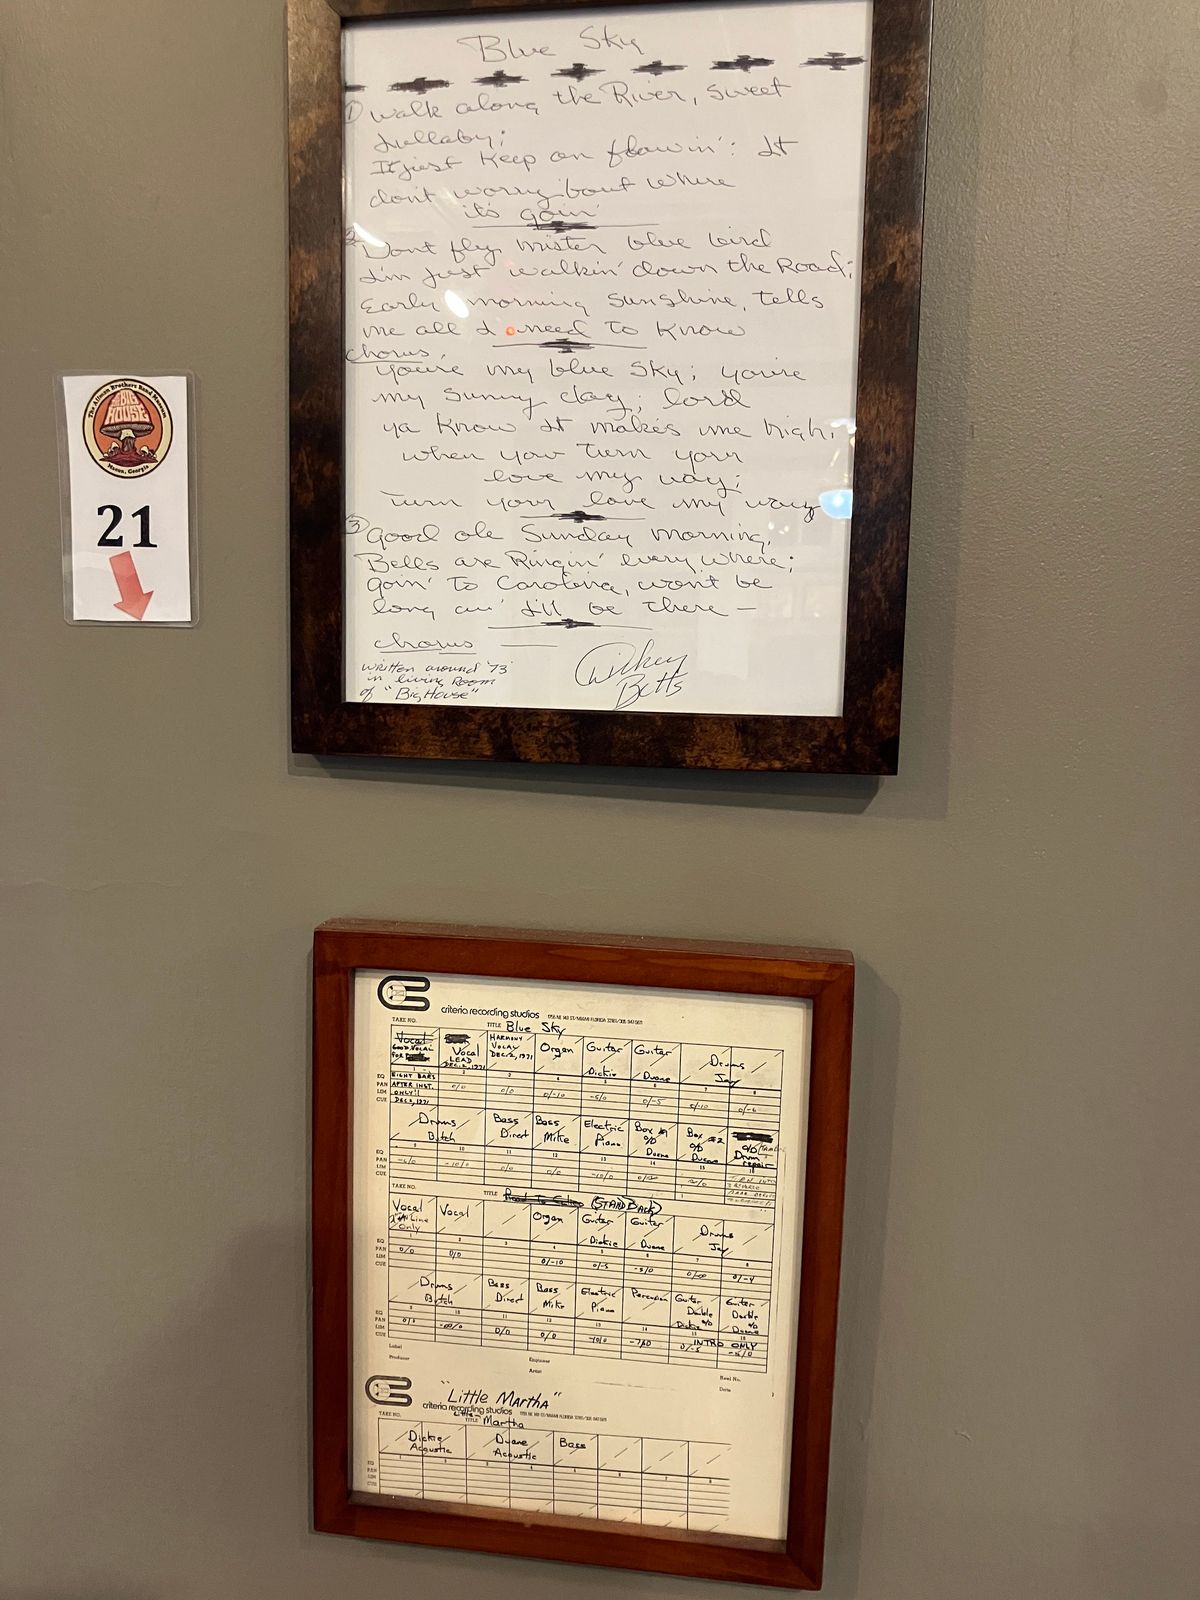 Blue Sky
① walk along the River, sweet
Lullaby;
It just keep on flowin': It
dont worry 'bout where
its goin'
2 Dont fly, mister blue bird
I'm just walkin' down the Road;
Early morning sunshine, tells
me all I need to know
chorus,
You're my blue sky; you're
my sunny day; lord
ya know it makes me high,
when you turn your
love my way;
Turn your love my way
③ Good ole Sunday morning,
Bells are Ringin' every where;
goin' to Carolina, wont be
long an' I'll be there —
chorus
written around '73
in living Room
of "Big House"
Dickey
Betts
The Allman Brothers Band Museum
THE BIG HOUSE
Macon, Georgia
21
criteria recording studios
TAKE NO. TITLE Blue Sky
Vocal Vocal LEAD DEC. 2, 1971 HARMONY VOCAL DEC. 2, 1971 Organ Guitar Dickie Guitar Duane Drums Jay
1 2 3 4 5 6 7 8
EQ EIGHT BARS
PAN AFTER INST.
LIM ONLY!!
CUE DEC 2, 1971
Drums Butch Bass Direct Bass Mike Electric Piano Box #1 o/D Duane Box #2 o/D Duane o/D Drum repair
EQ
PAN
LIM
CUE
TAKE NO. TITLE (STAND BACK)
Vocal Only Vocal Organ Guitar Dickie Guitar Duane Drums Jay
EQ
PAN 0/0 0/0
LIM
CUE
Drums Butch Bass Direct Bass Mike Electric Piano Percussion Guitar Double Dickie o/D Guitar Double o/D Duane
EQ
PAN
LIM
CUE
INTRO ONLY
Label Engineer Reel No.
Producer Artist Date
"Little Martha"
criteria recording studios
TAKE NO. TITLE Little Martha
Dickie Acoustic Duane Acoustic Bass
EQ
PAN
LIM
CUE